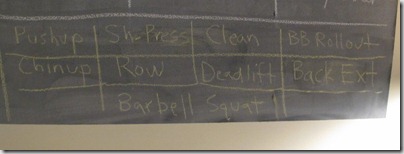 Pushup Sh-Press Clean BB Rollout
Chinup Row Deadlift Back Ext
Barbell Squat